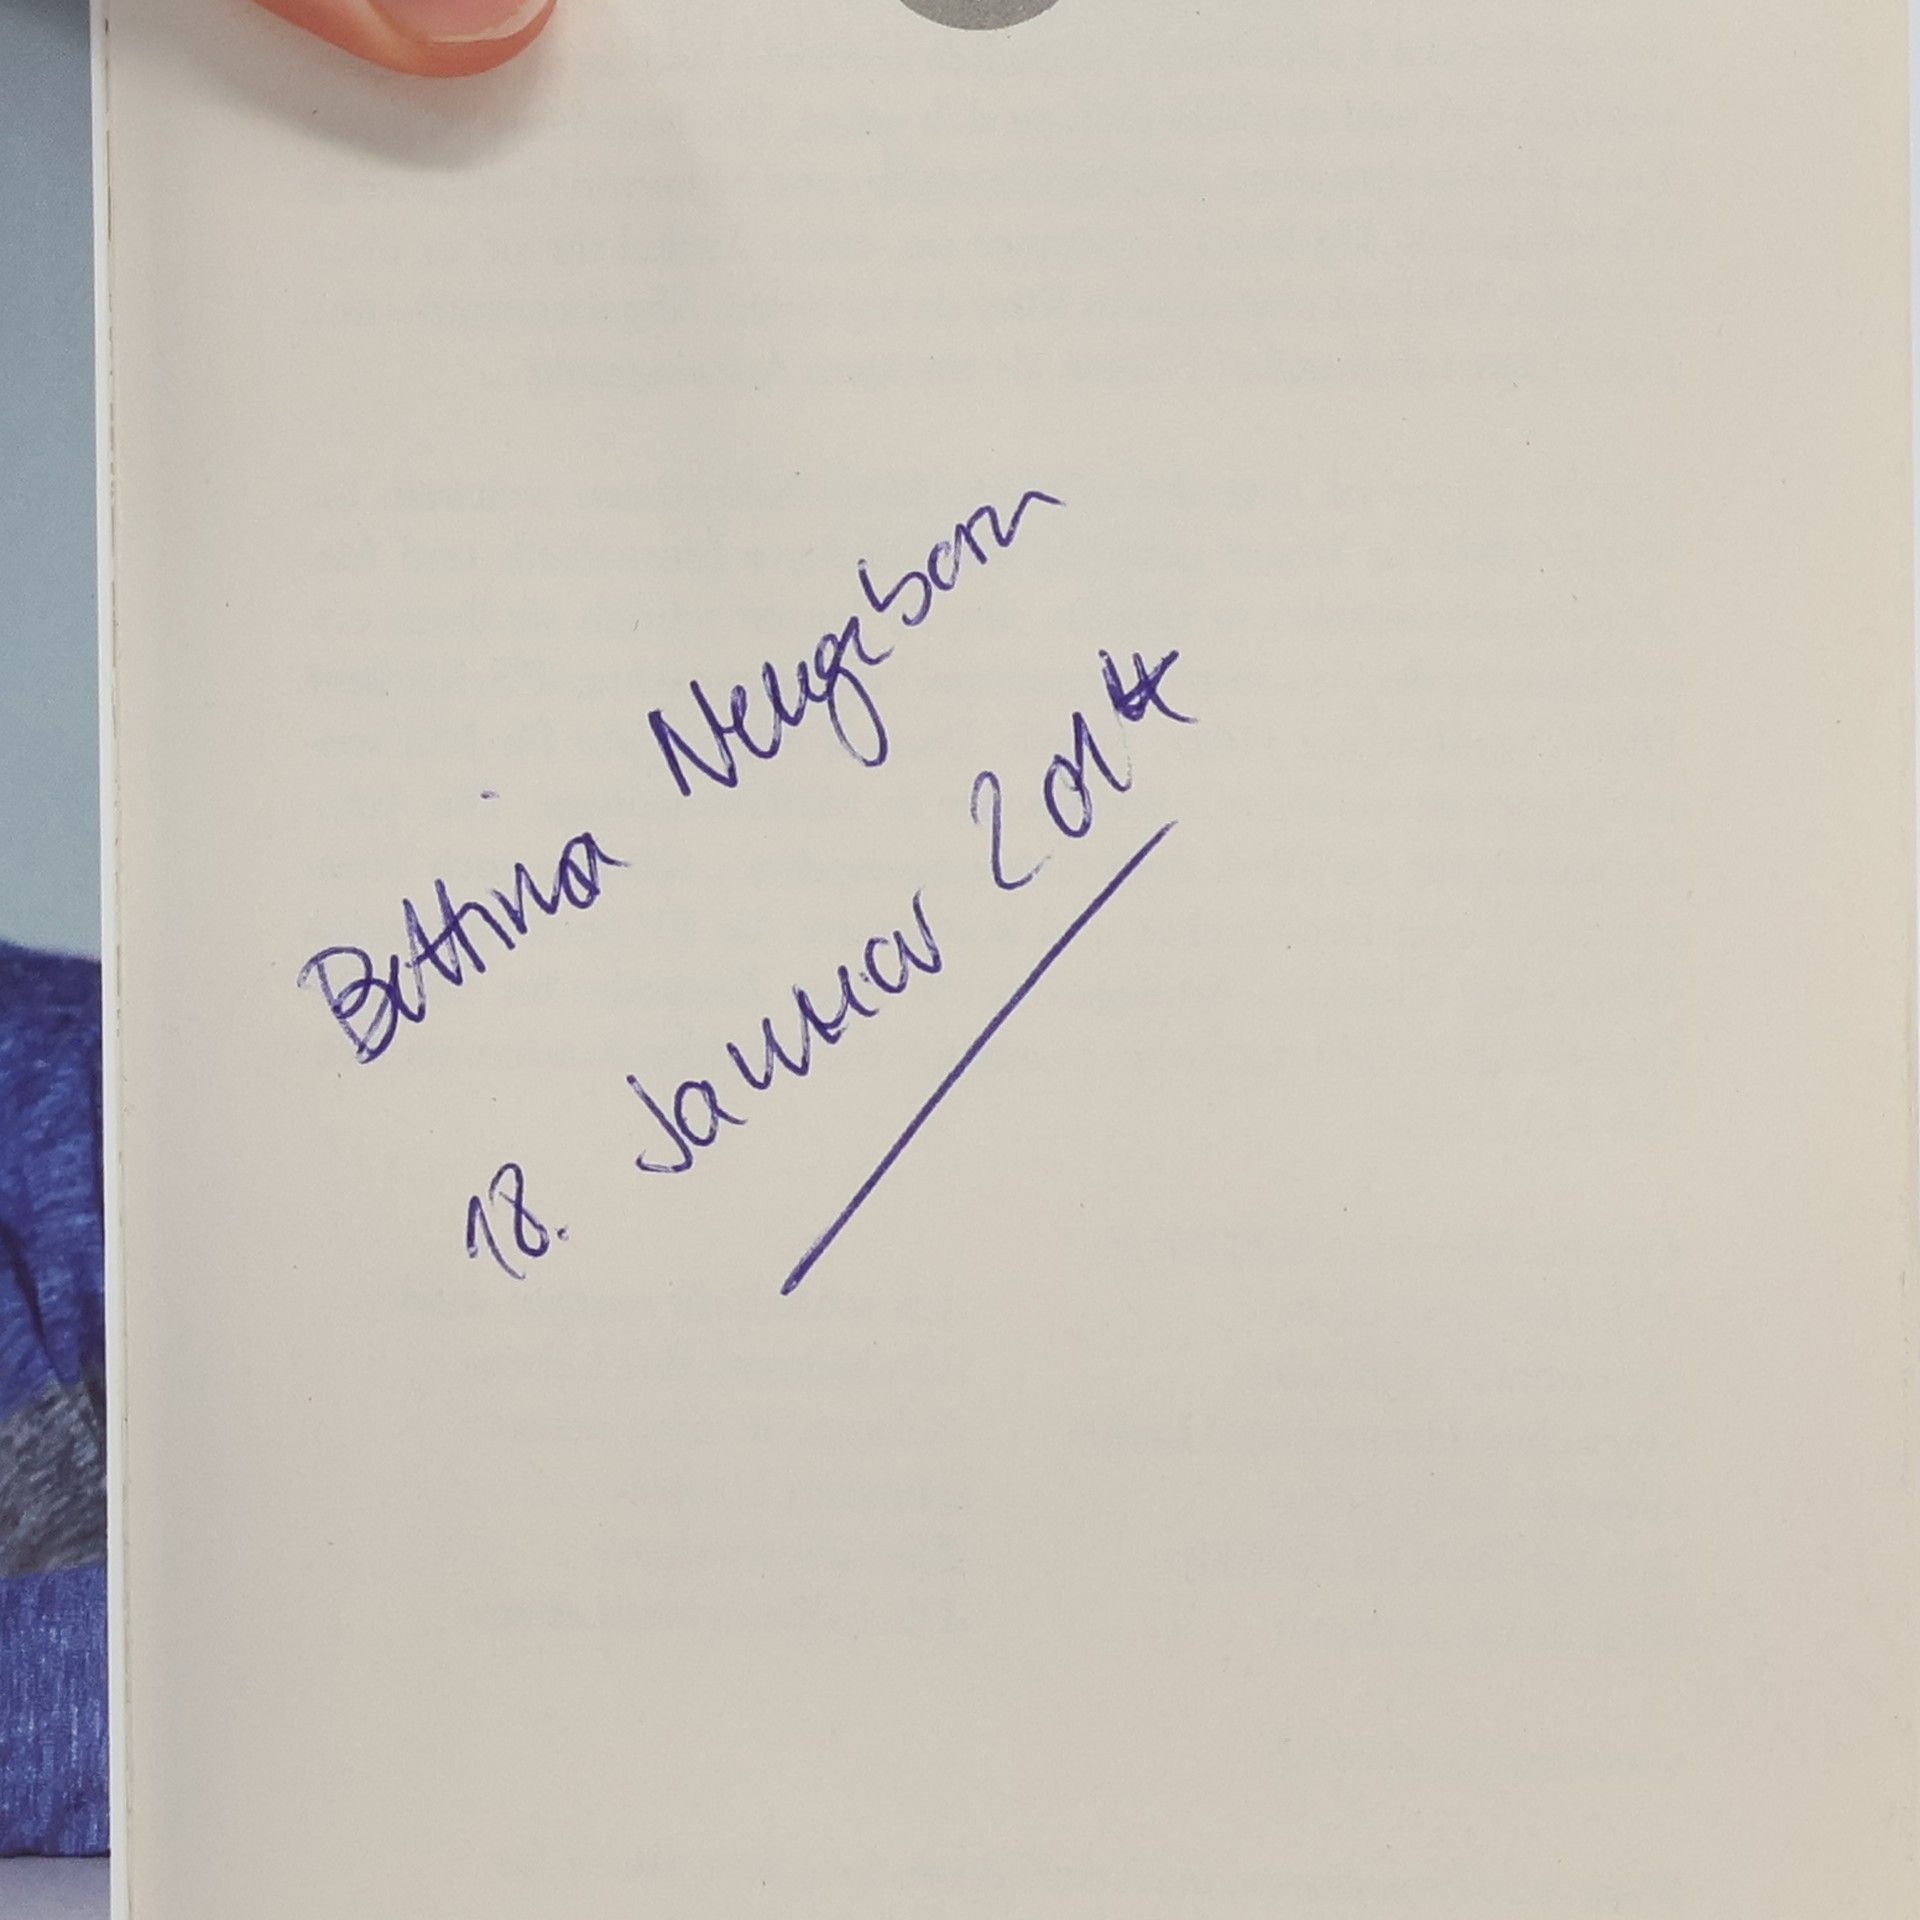 Bettina Neugeborn
18. Januar 2014